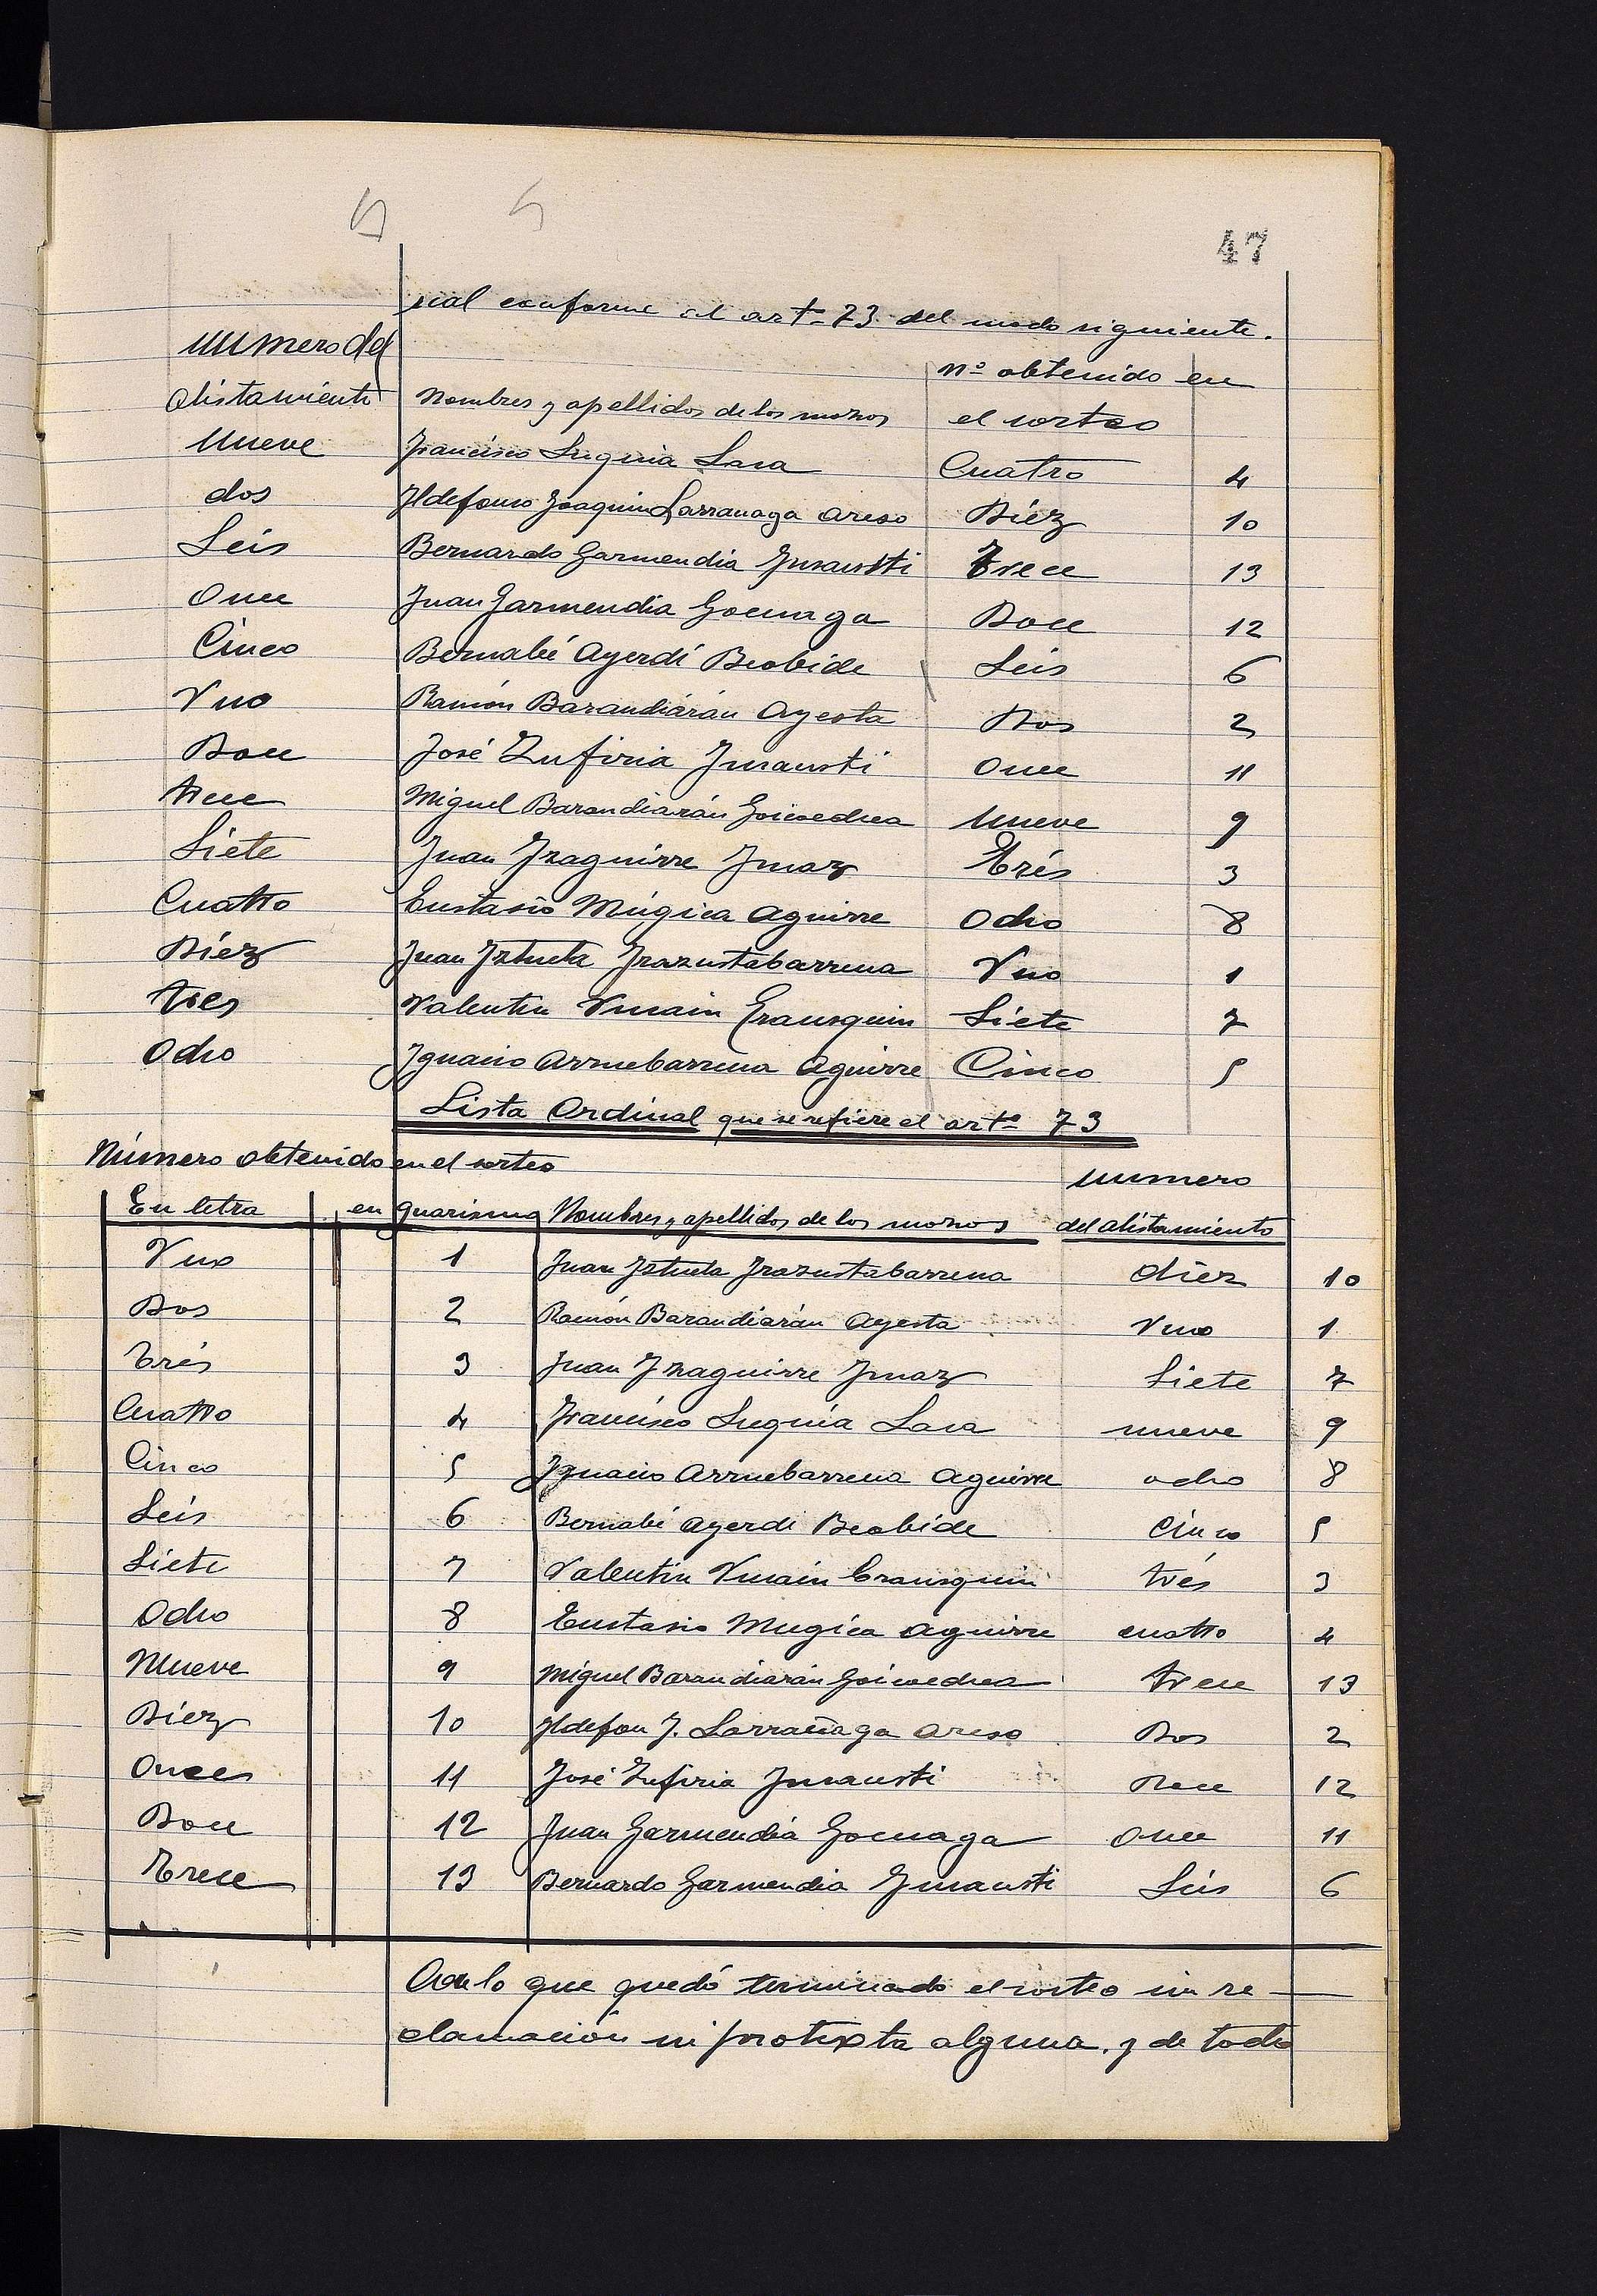 47
nal conforme al artº 73 del modo siguiente.
Numero del alistamiento Nombres y apellidos de los mozos nº obtenido en el sorteo
Nueve Francisco Suquia Lasa Cuatro 4
dos Ildefonso Joaquin Larranaga Areso Diez 10
Seis Bernardo Garmendia Insausti Trece 13
Once Juan Garmendia Goenaga Doce 12
Cinco Bernabé Ayerdi Beobide Seis 6
Uno Ramón Barandiarán Ayesta Dos 2
Doce José Zufiria Insausti Once 11
trece Miguel Barandiarán Goicoechea Nueve 9
Siete Juan Izaguirre Imaz Trés 3
Cuatro Eustasio Múgica Aguirre Ocho 8
Diez Juan Iztueta Irazustabarrena Uno 1
tres Valentin Unsain Erausquin Siete 7
Ocho Ignacio Arruebarrena Aguirre Cinco 5
Lista Ordinal que se refiere el artº 73
Número obtenido en el sorteo numero
En letra en guarismo Nombres y apellidos de los mozos del alistamiento
Uno 1 Juan Iztueta Irazustabarrena diez 10
Dos 2 Ramón Barandiarán Ayesta Uno 1
Trés 3 Juan Izaguirre Imaz Siete 7
Cuatro 4 Francisco Suquia Lasa nueve 9
Cinco 5 Ignacio Arruebarrena Aguirre ocho 8
Seis 6 Bernabé Ayerdi Beobide Cinco 5
Siete 7 Valentin Unsain Erausquin trés 3
Ocho 8 Eustasio Mugica Aguirre cuatro 4
Nueve 9 Miguel Barandiarán Goicoechea trece 13
Diez 10 Ildefon J. Larrañaga Areso Dos 2
Once 11 José Zufiria Insausti Doce 12
Doce 12 Juan Garmendia Goenaga Once 11
Trece 13 Bernardo Garmendia Insausti Seis 6
Con lo que quedó terminado el sorteo sin re-
clamación ni protexta alguna. y de todo